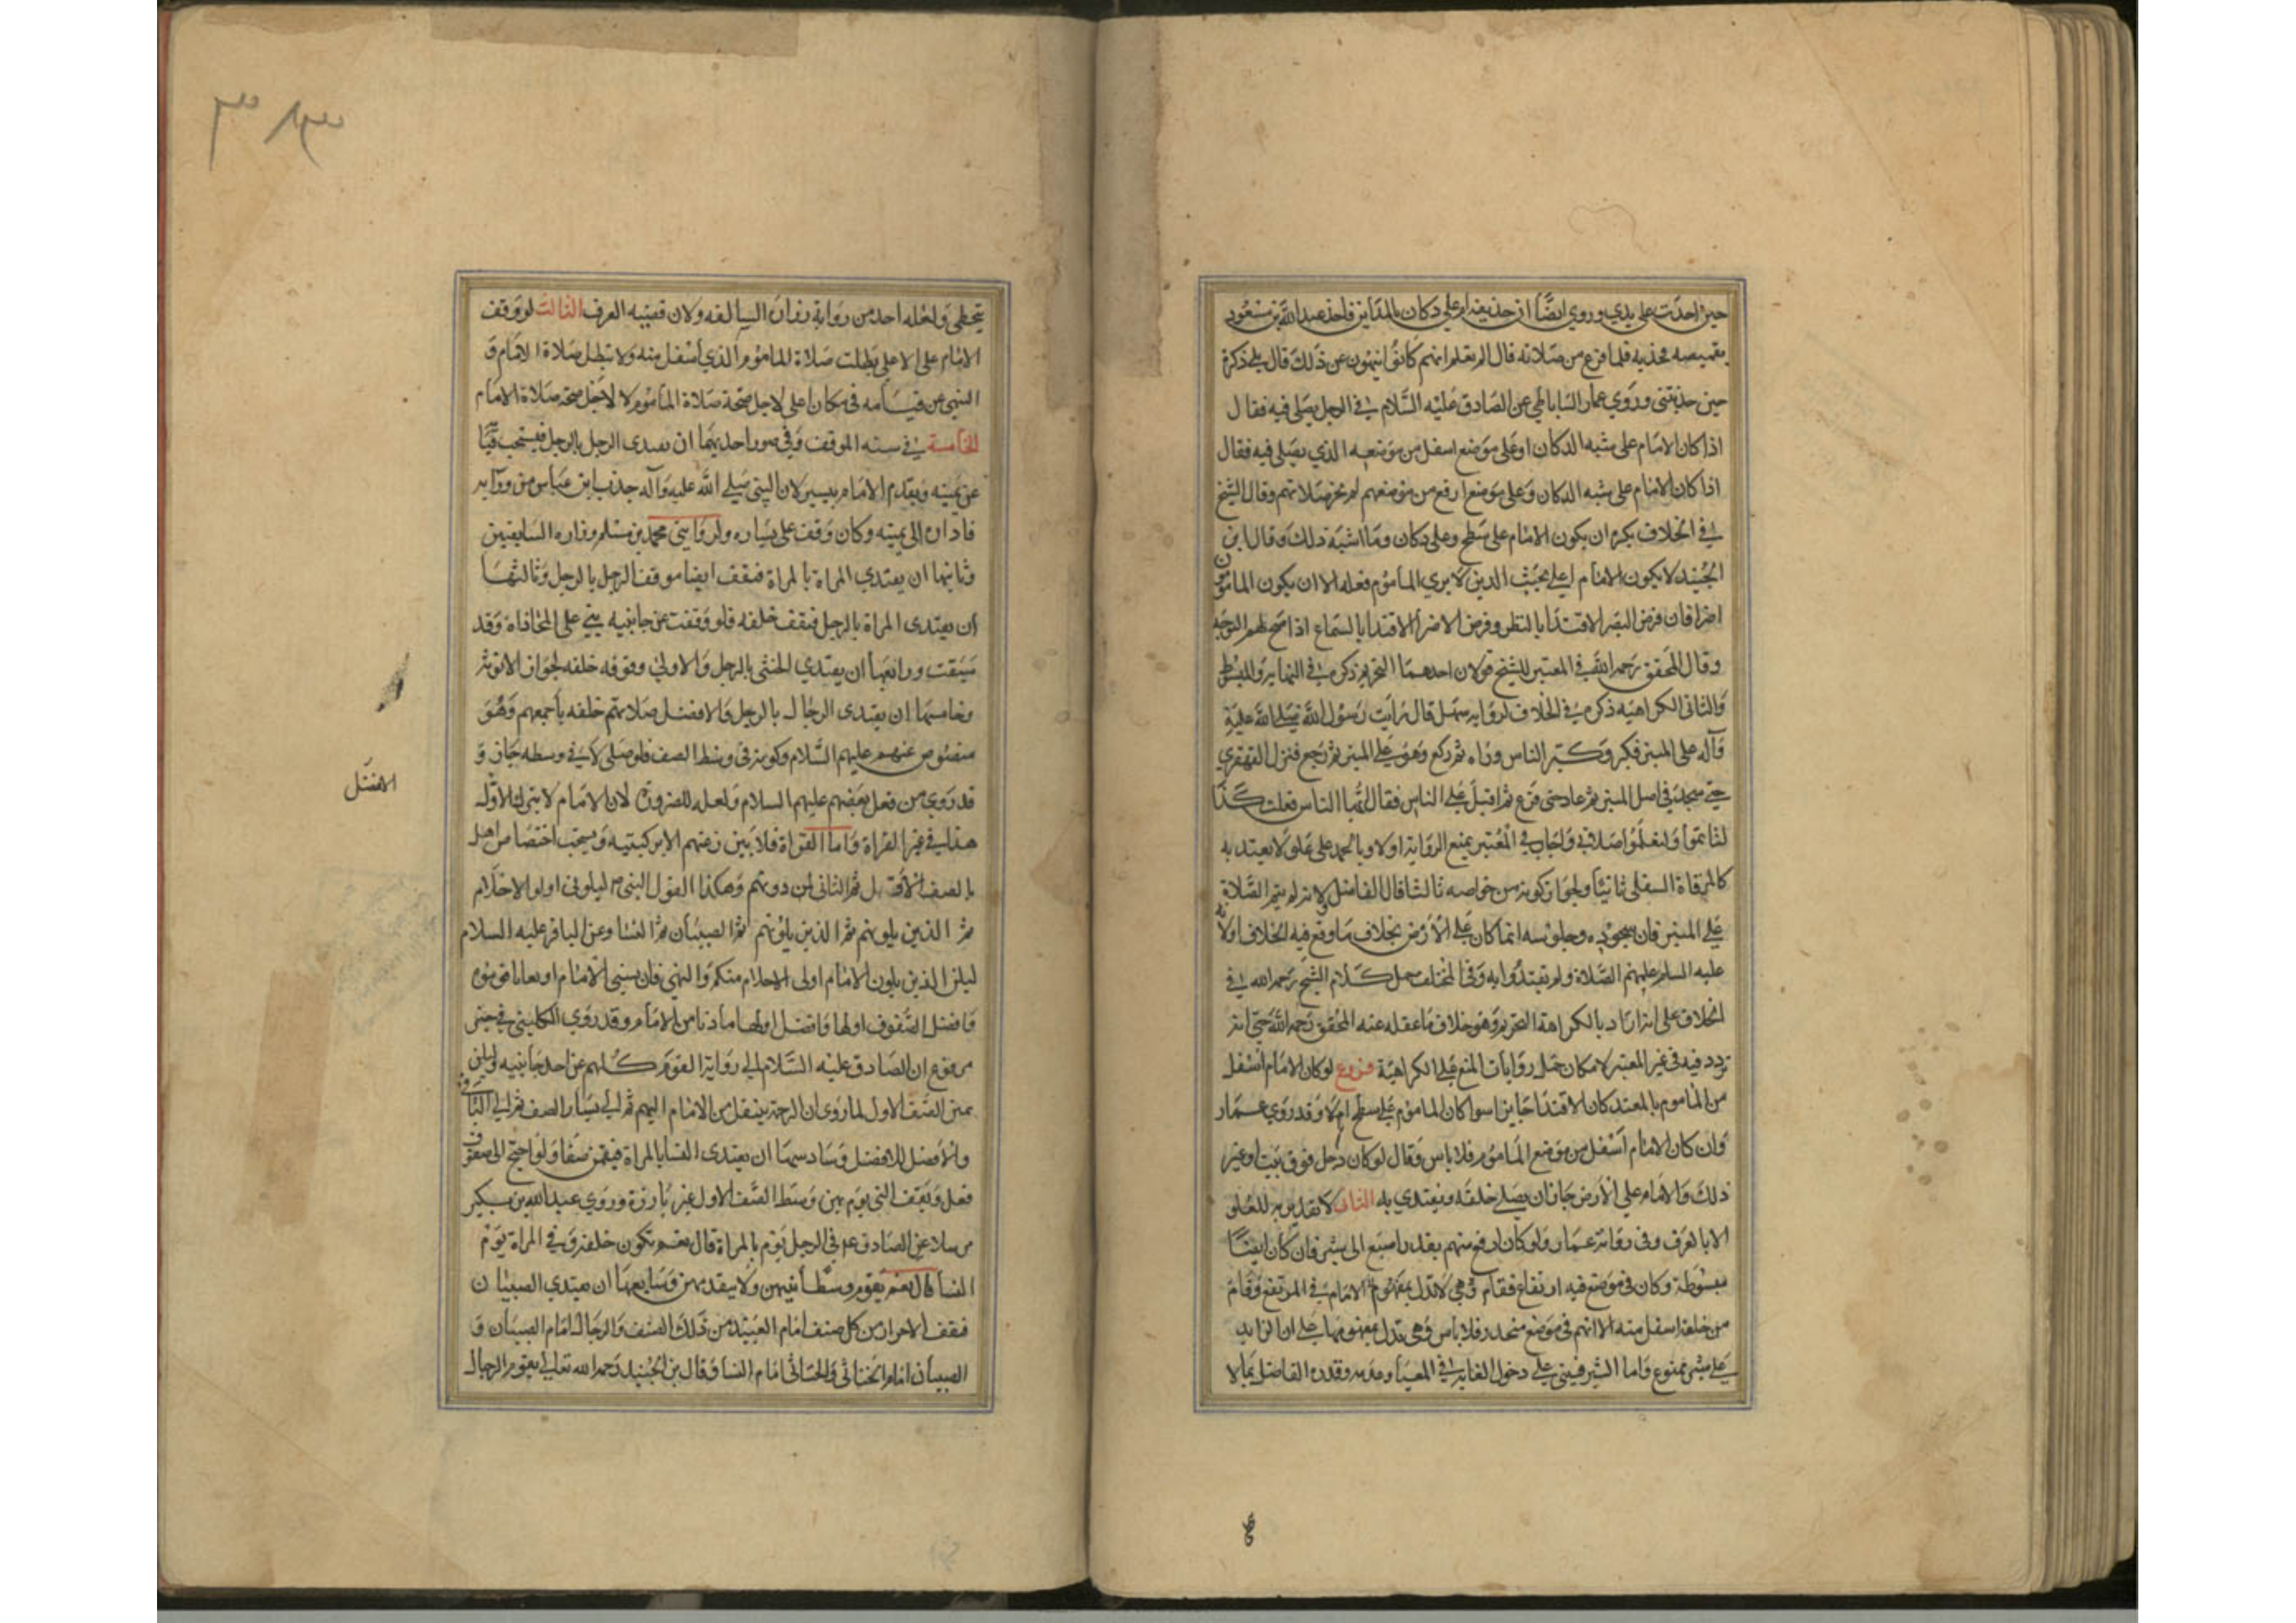 حين اخذت على يدي وروي ايضًا ان حذيفة ام على دكان بالمداين فاخذ عبد الله بن مسعود
بقميصه فجذبه فلما فرغ من صلاته قال الم تعلم انهم كانوا ينهون عن ذلك قال بلى ذكرة
حين جذبتنى وروي عمار الساباطي عن الصادق عليه السلام في الرجل يصلى فيه فقال
اذا كان الامام على شبه الدكان او على موضع اسفل من موضعه الذي يصلى فيه فقال
اذا كان الامام على شبه الدكان وعلى موضع ارفع من موضعهم لم تجز صلاتهم وقال الشيخ
في الخلاف يكره ان يكون الامام على سطح وعلى دكان وما اشبه ذلك وقال ابن
الجنيد لا يكون الامام اعلى بحيث الذين لا يري المأموم فعله الا ان يكون المأمومون
اضرا فان فرض البصر الاقتدا بالنظر وفرض الاضرا الاقتدا بالسماع اذا صح لهم التوجه
وقال المحقق رحمه الله في المعتبر للشيخ قولان احدهما التحريم ذكره في النهاية والمبسوط
والثانى الكراهية ذكره في الخلاف لرواية سهل قال رايت رسول الله صلى الله عليه
وآله على المنبر فكبر وكبر الناس وراه ثم ركع وهو على المنبر ثم رجع فنزل القهقري
حتى سجد في اصل المنبر ثم عاد حتى فرغ ثم اقبل على الناس فقال ايها الناس فعلت كذا
لتاتموا ولتعلموا صلاتي واجاب في المعتبر بمنع الرواية اولا وبالحمد على علو لا يعتد به
كالمرقاة السفلى ثانيًا ولجواز كونه من خواصه ثالثا قال الفاضل ولانه لم يتم الصلاة
على المنبر فان سجوده وجلوسه انما كان على الارض بخلاف ما وقع فيه الخلاف اولانه
عليه السلم علمهم الصلاة ولم يقتدوا به وفي المختلف حمل كلام الشيخ رحمه الله في
الخلاف على انه اراد بالكراهة التحريم وهو خلاف ما عقله عنه المحقق رحمه الله حتى انه
تردد فيه في غير المعتبر لامكان حمل روايات المنع على الكراهية فروع لو كان الامام اسفل
من الماموم بالمعتد كان الاقتدا جايزا سوا كان الماموم على سطح ام لا وقد روي عمار
وان كان الامام اسفل من موضع الماموم فلا باس وقال لو كان رجل فوق بيت او غير
ذلك والامام على الارض جاز ان يصلى خلفه ويقتدي به الثانى لا تقدير للعلو
الا بالعرف وفى رواية عمار ولو كان ارفع منهم بقدر اصبع الى شبر فان كان ايضًا
مبسوطة وكان في موضع فيه ارتفاع فقام وهي لا تدل بمفهوم الامام في المرتفع وقام
من خلفه اسفل منه الا انهم في موضع منحدر فلا باس وهى تدل بمفهومها على ان الزايد
على شبر ممنوع واما الشبر فيبنى على دخول الغاية في المغيا وعدمه وقدره الفاضل بما لا
ع
يتخطى ولعله اخذه من رواية زرارة السالفه ولان قضيته العرف الثالث لو وقف
الامام على الاعلى بطلت صلاة الماموم الذي اسفل منه ولا تبطل صلاة الامام و
النهي عن قيامه في مكان اعلى لاجل صحة صلاة المأموم لا لاجل صحة صلاة الامام
الخامسة في سنه الموقف وفي صور احديهما ان يقتدى الرجل بالرجل فيستحب قيامه
عن يمينه ويقدم الامام بيسير لان النبي صلى الله عليه وآله جذب ابن عباس من وورآيه
فاداره الى يمينه وكان وقف على يساره ولروايتى محمد بن مسلم وزاره السابقين
وثانيها ان يقتدي المراة بالمراة فتقف ايضا موقف الرجل بالرجل وثالثها
ان يقتدى المراة بالرجل فتقف خلفه فلو وقفت عن جانبيه بني على المحاذاة وقد
سبقت ورابعها ان يقتدي الخنثى بالرجل والاولى وقوفه خلفه لجواز الانوثة
وخامسها ان يقتدى الرجال بالرجل والافضل صلاتهم خلفه باجمعهم وهو
منصوص عنهم عليهم السلام وكونه فى وسط الصف فلو صلى لا في وسطه جاز و
قد روي من فعل بعضهم عليهم السلام ولعله للضرورة لان الامام لا يترك الاوله
هذا في غير العراة واما العراة فلا يبرز زعيمهم الا بركبتيه ويستحب اختصاص اهل
بالصف الاول ثم الثانى لمن دونهم وهكذا القول النبى ص ليلونى اولو الاحلام
الافضل
ثم الذين يلونهم ثم الذين يلونهم ثم الصبيان ثم النسا وعن الباقر عليه السلام
ليكن الذين يلون الامام اولى الاحلام منكم والنهي فان نسي الامام او تعايا قوموه
وافضل الصفوف اولها وافضل اولها ما دنا من الامام وقد روي الكليني في حتى
مرفوع ان الصادق عليه السلام الى رواية القوم كلهم عن احد جانبيه وليكن
يمين الصف الاول لما روى ان الرحمة ينتقل من الامام اليهم ثم الى يسار الصف ثم الى الثانى
والافضل للافضل وسادسها ان يقتدى النسا بالمراة فيقمن صفا ولو احتج الى صفوف
فعل وتقف التي تؤم بهن وسط الصف الاول غير بارزة وروي عبد الله بن بكير
مرسلا عن الصادق ع في الرجل يؤم بالمراة قال نعم تكون خلفه وفي المراة تؤم
النسا قال نعم يقوم وسطا بينهن ولا يتقدمهن وسابعها ان يقتدي الصبيان
فتقف الاحرار من كل صنف امام العبيد من ذلك الصنف والرجال امام الصبيان و
الصبيان امام الخناثى والخناثى امام النسا وقال بن الجنيد رحمه الله تعالى يقوم الرجال